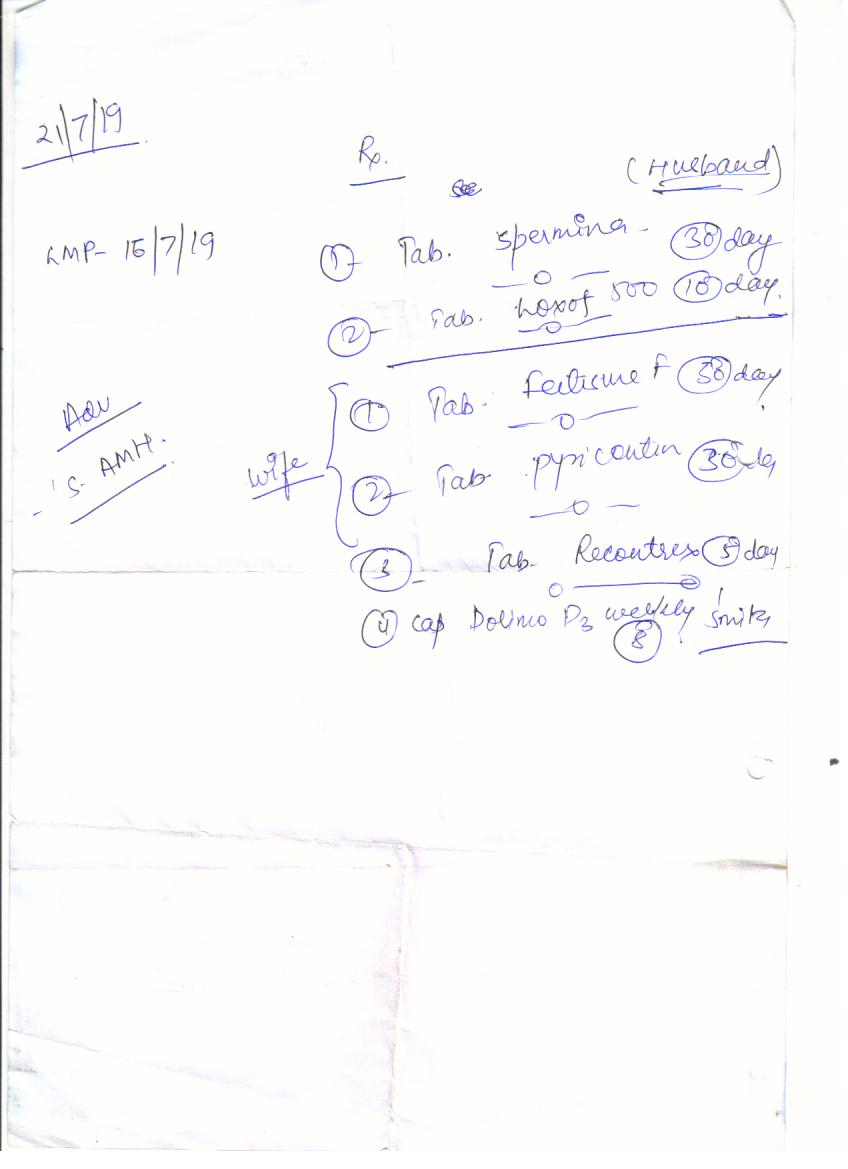 21/7/19
Rx.
(Husband)
LMP- 15/7/19
① Tab. spermina - 30 day
② Tab. Loxof 500 10 day.
Adv
S. AMH.
wife
① Tab. F 30 day
② Tab pyricontin 30 da
③ Tab. Recontrex 5 day
④ cap D3 weekly
8